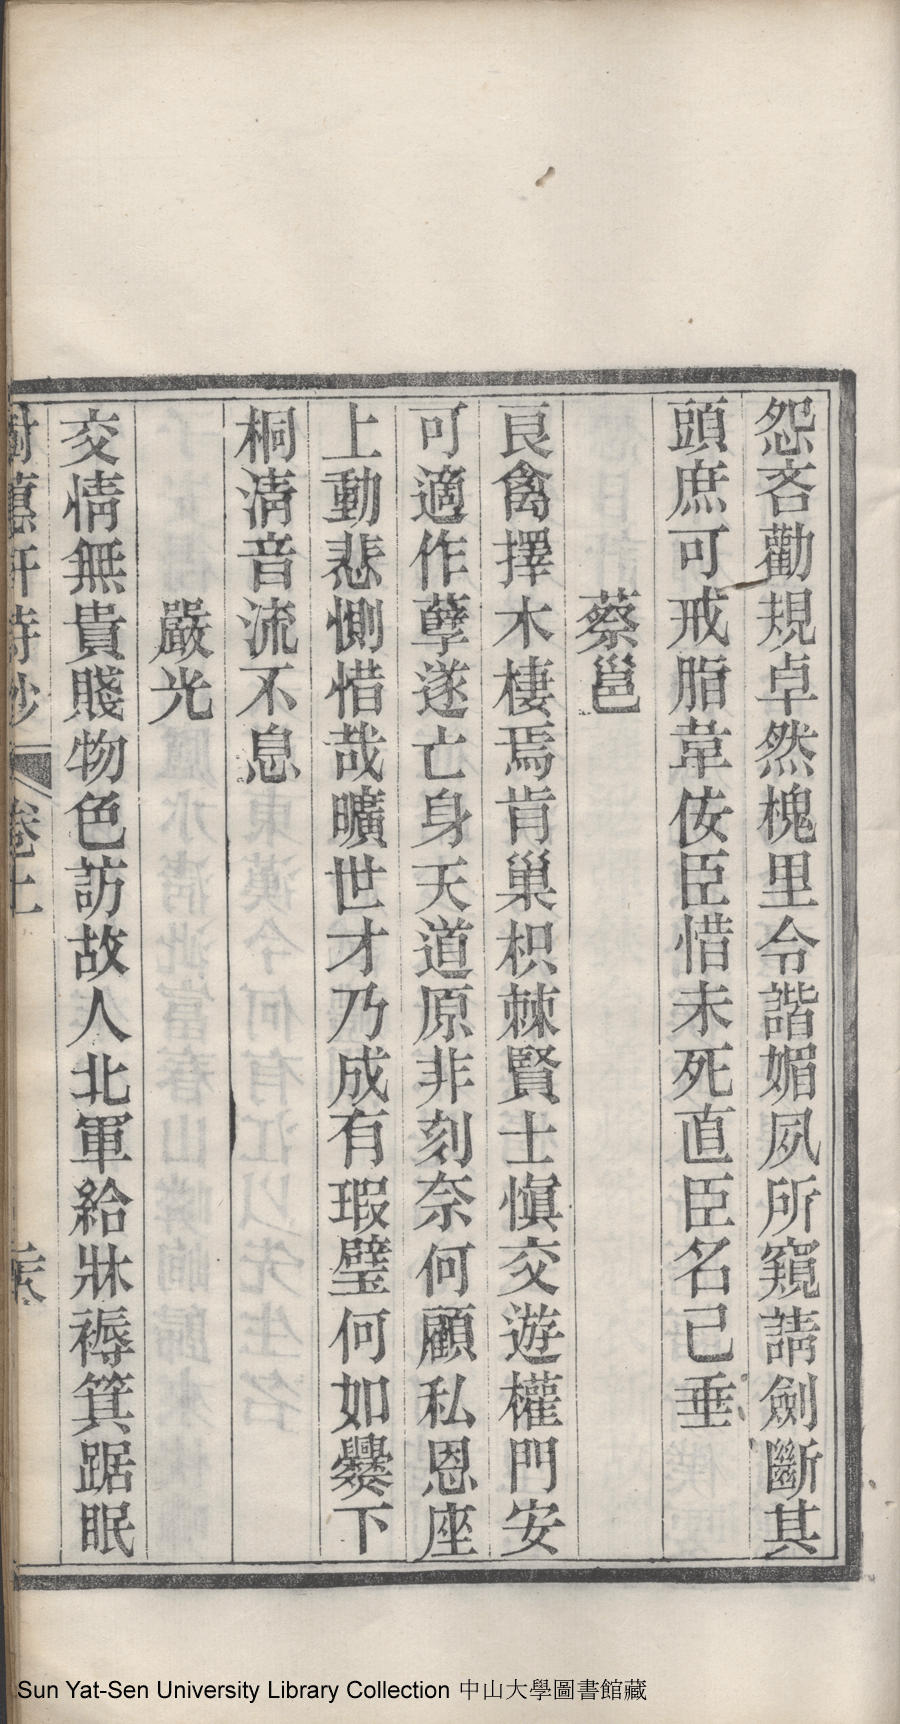 怨吝勸規卓然槐里令諧媚夙所窺請劍斷其
頭庶可戒脂韋佞臣惜未死直臣名已垂
蔡邕
良禽擇木棲焉肯巢枳棘賢士慎交遊權門安
可適作孽遂亡身天道原非刻奈何顧私恩座
上動悲惻惜哉曠世才乃成有瑕璧何如爨下
桐淸音流不息
嚴光
交情無貴賤物色訪故人北軍給牀褥箕踞眠
軒詩鈔 卷上
Sun Yat-Sen University Library Collection 中山大學圖書館藏